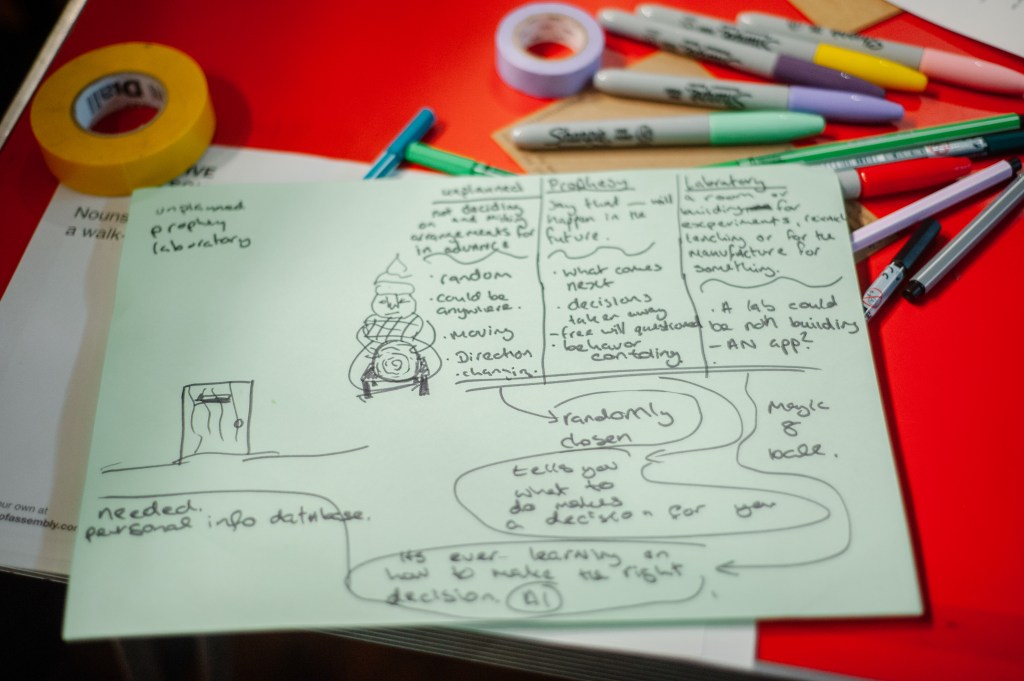 Diall
Sharpie
Sharpie
VE
Nouns
a walk-
our own at
ofassembly.com
unplanned
prophey
laboratory
unplanned
not deciding
on and making
arrangements for
in advance
random
could be
anywhere.
moving
Direction
changin.
Prophesy
Say that — will
happen in the
future.
what comes
next
decisions
taken away
- free will questioned
behavor
contoling
Laboratory
a room or
building for
experiments,
teaching or for the
manufacture for
something.
A lab could
be not building
- AN app?
randomly
closen
Magic
8
tells you
what to
do makes
a decision for you
needed.
personal info database.
its ever learning on
how to make the right
decision. AI